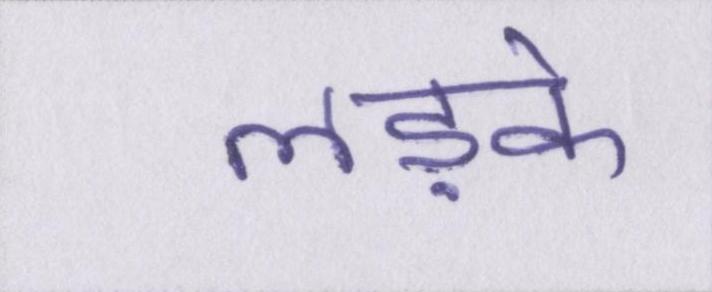 लड़के